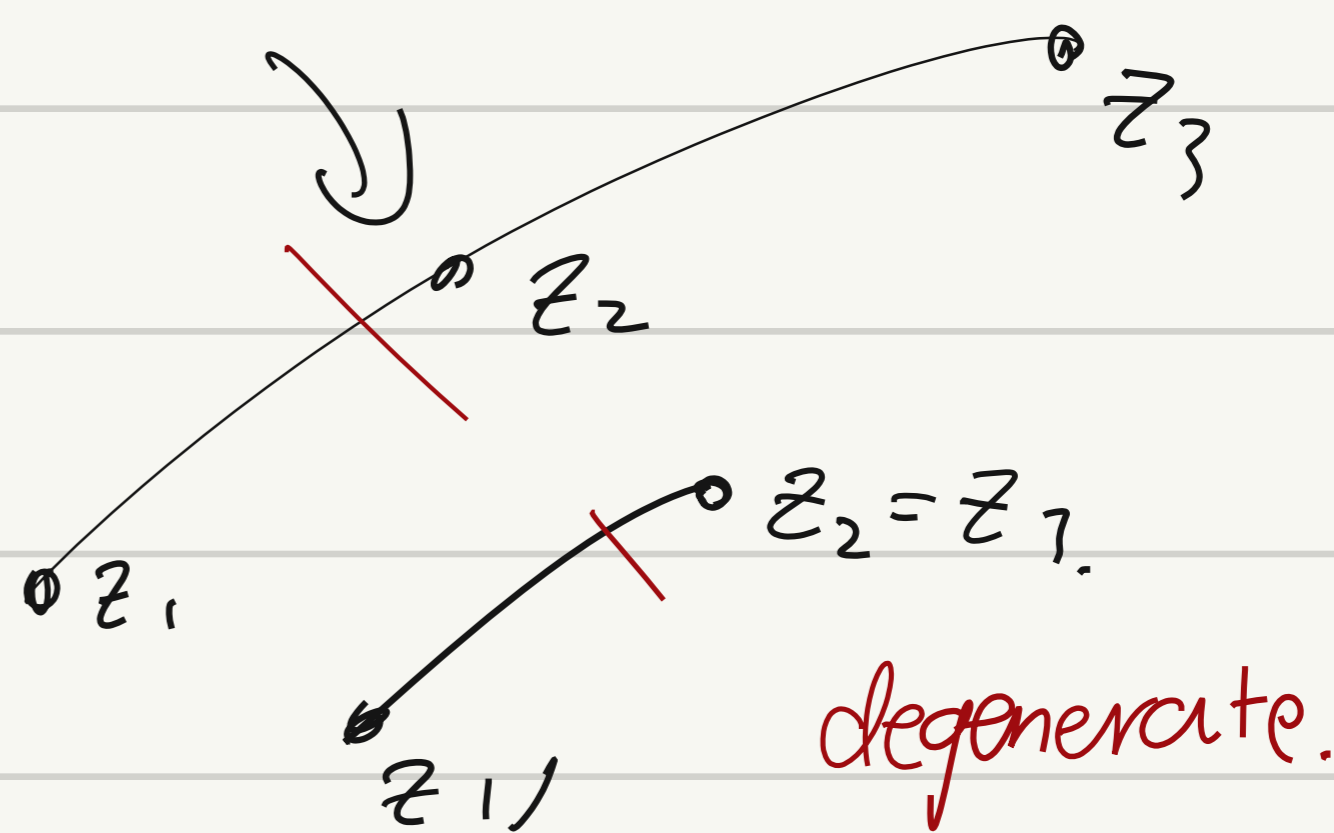 z₃
z₂
z₁
z₂ = z₃.
z₁,
degenerate.